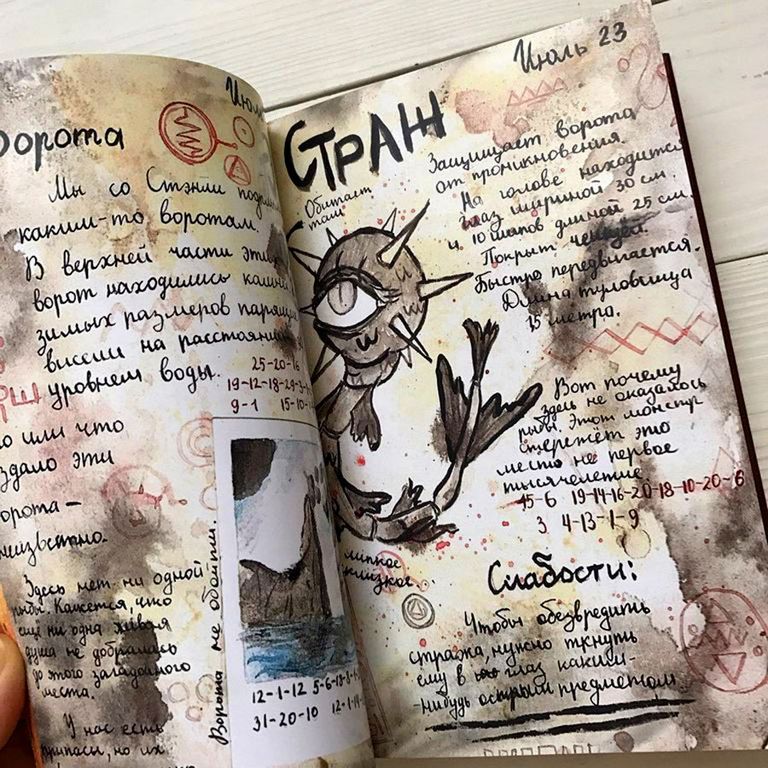 Июль
ворота
Мы со Стэнли
каким-то воротам.
В верхней части этих
ворот находились камни
зимых размеров
висели на расстоянии
уровнем воды.
25-20-16
19-12-18-29-3-
9-1 15-10-
или что
здало эти
ворота –
неизвестно.
Здесь нет ни одной
рыбы. Кажется, что
ещё ни одна живая
душа не добралась
до этого загадочного
места.
У нас есть
припасы, но их
Ворота не обойти.
12-1-12 5-6-18-8-
31-20-10 12-1-
Июль 23
СТРАЖ
Обитает
там
Защищает ворота
от проникновения
На голове находится
глаз шириной 30 см
и 10 шипов длиной 25 см.
Покрыт чешуёй.
Быстро передвигается.
Длина туловища
15 метро.
Вот почему
здесь не оказалось
рыбы. Этот монстр
стережёт это
место не первое
тысячелетие
15-6 19-14-16-20-18-10-20-6
3 4-13-1-9
липкое
склизкое
Слабости:
Чтобы обезвредить
стража, нужно ткнуть
ему в глаз каким-
-нибудь острым предметом